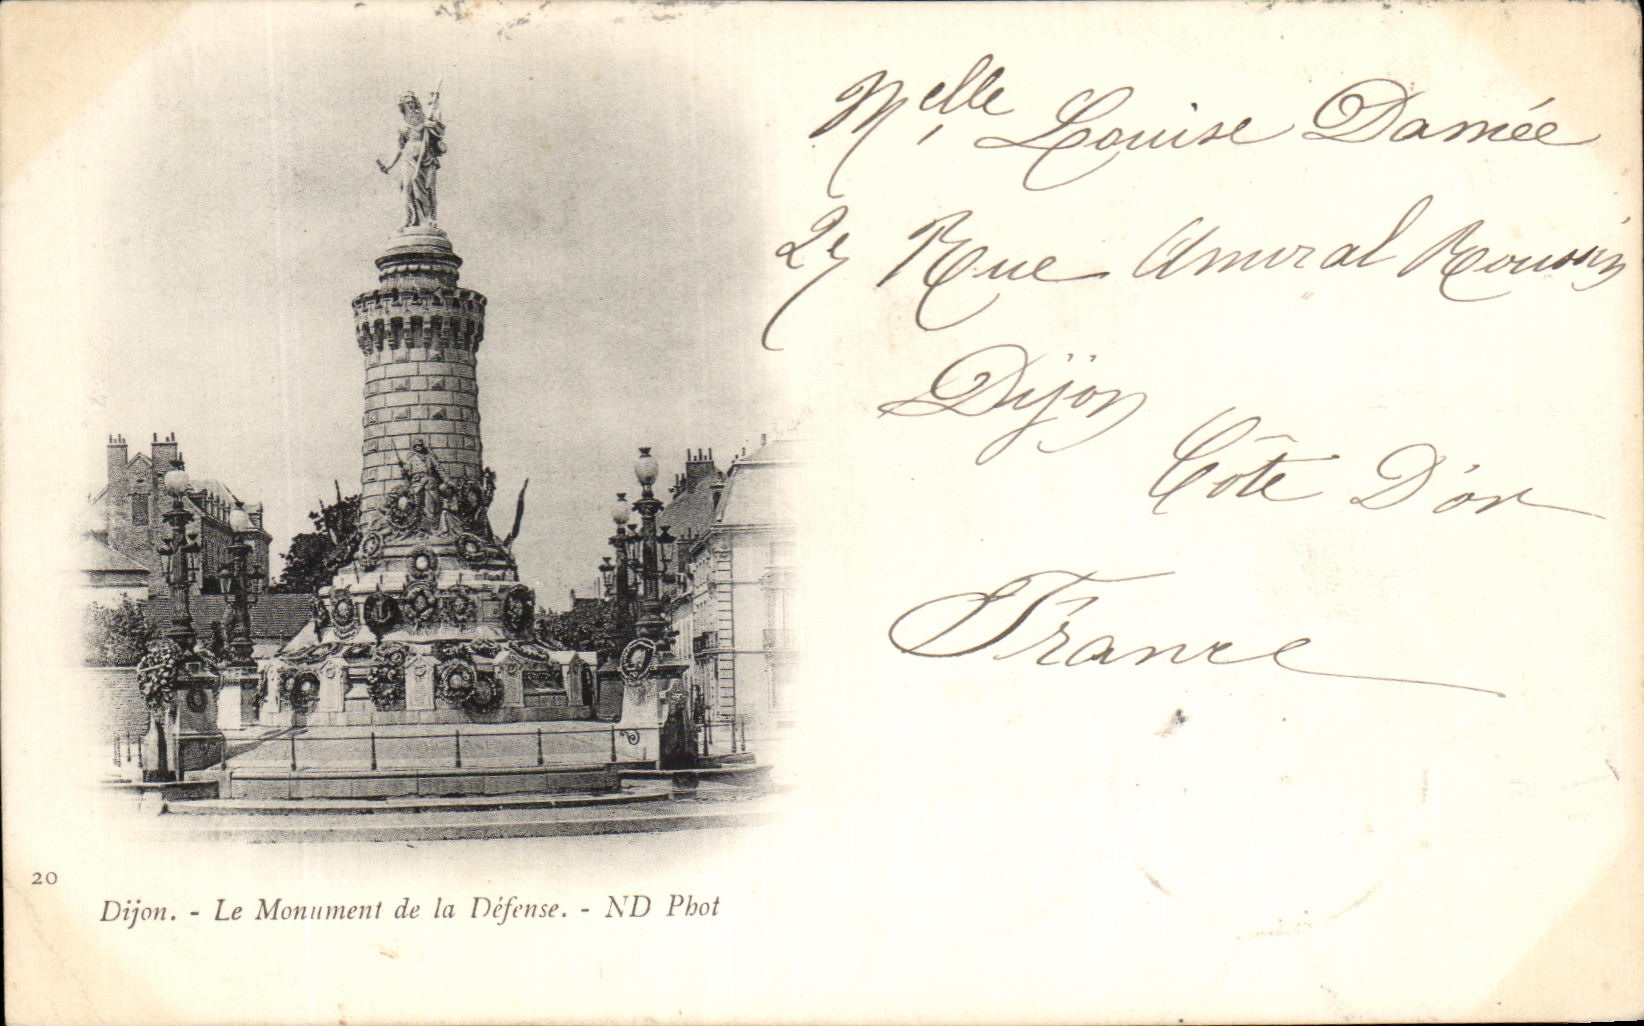 Melle Louise Damée
27 Rue Amiral Roussin
Dijon
Côte D'or
France
20
Dijon. - Le Monument de la Défense. - ND Phot